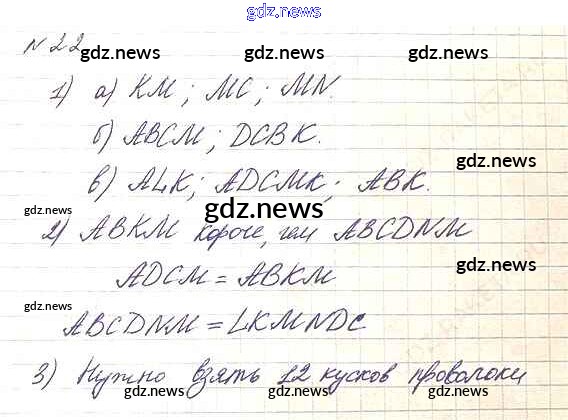 gdz.news
№ 22
gdz.news gdz.news gdz.news
1) а) КМ; МС; MN.
б) АВСМ; DCBK.
gdz.news
в) ALK; ADCMK; ABK.
gdz.news gdz.news
2) АВКМ короче, чем ABCDNM
gdz.news
ADCM = ABKM
gdz.news
ABCDNM = LKMNDC
3) Нужно взять 12 кусков проволоки
gdz.news gdz.news gdz.news